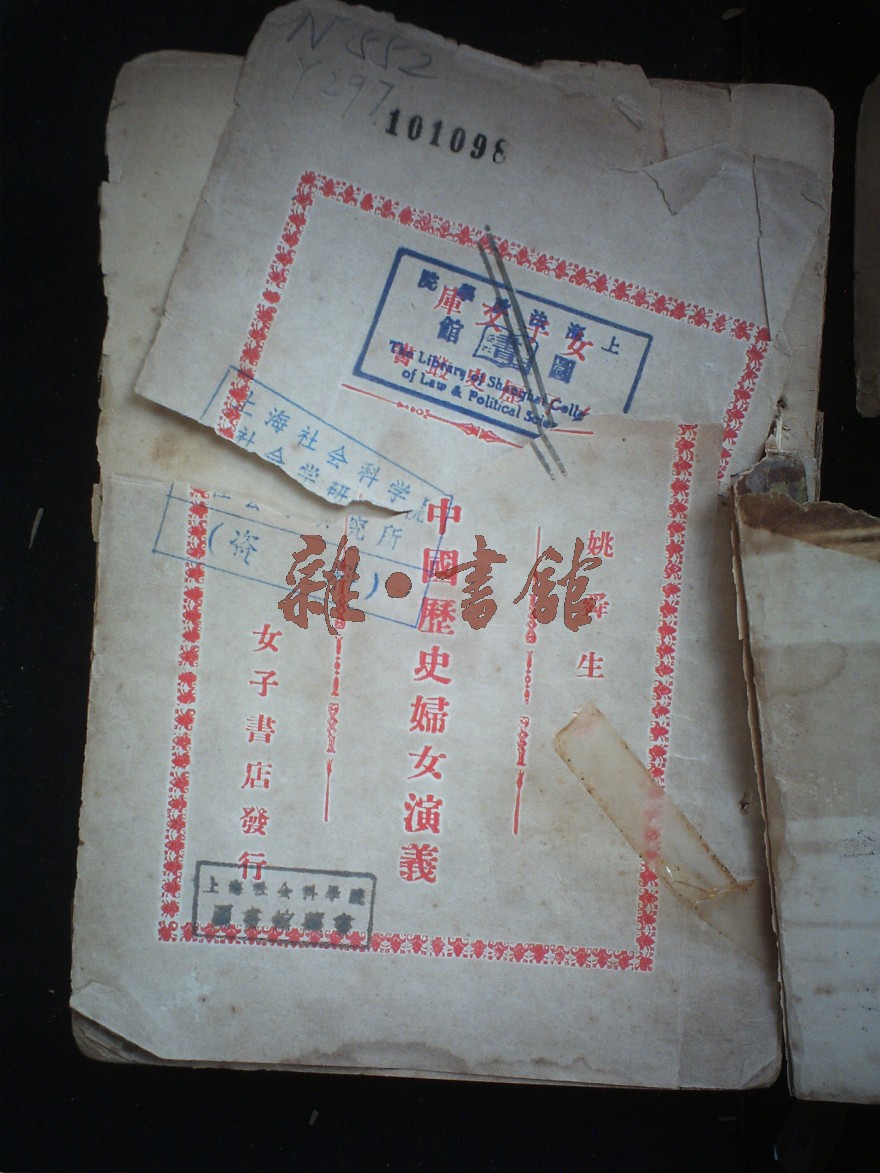 N 552
Y297
101098
女子文庫
史叢書
上海法學院
圖書館
The Library of Shanghai Colle
of Law & Political Scie
上海社会科学院
社会学研究所
(资料)
姚舜生
中國歷史婦女演義
女子書店發行
上海社会科学院
圖書館藏書
雜·書館